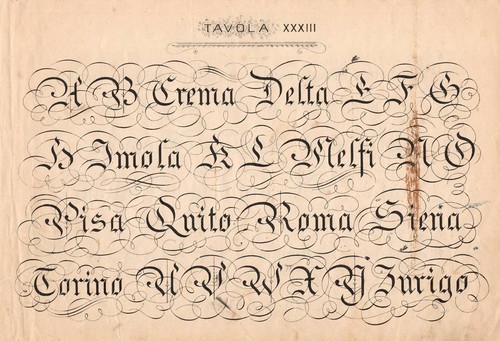 TAVOLA XXXIII
A B Crema Delta E F G
H Imola K L Melfi N O
Pisa Quito Roma Siena
Torino U V W X Y Zurigo